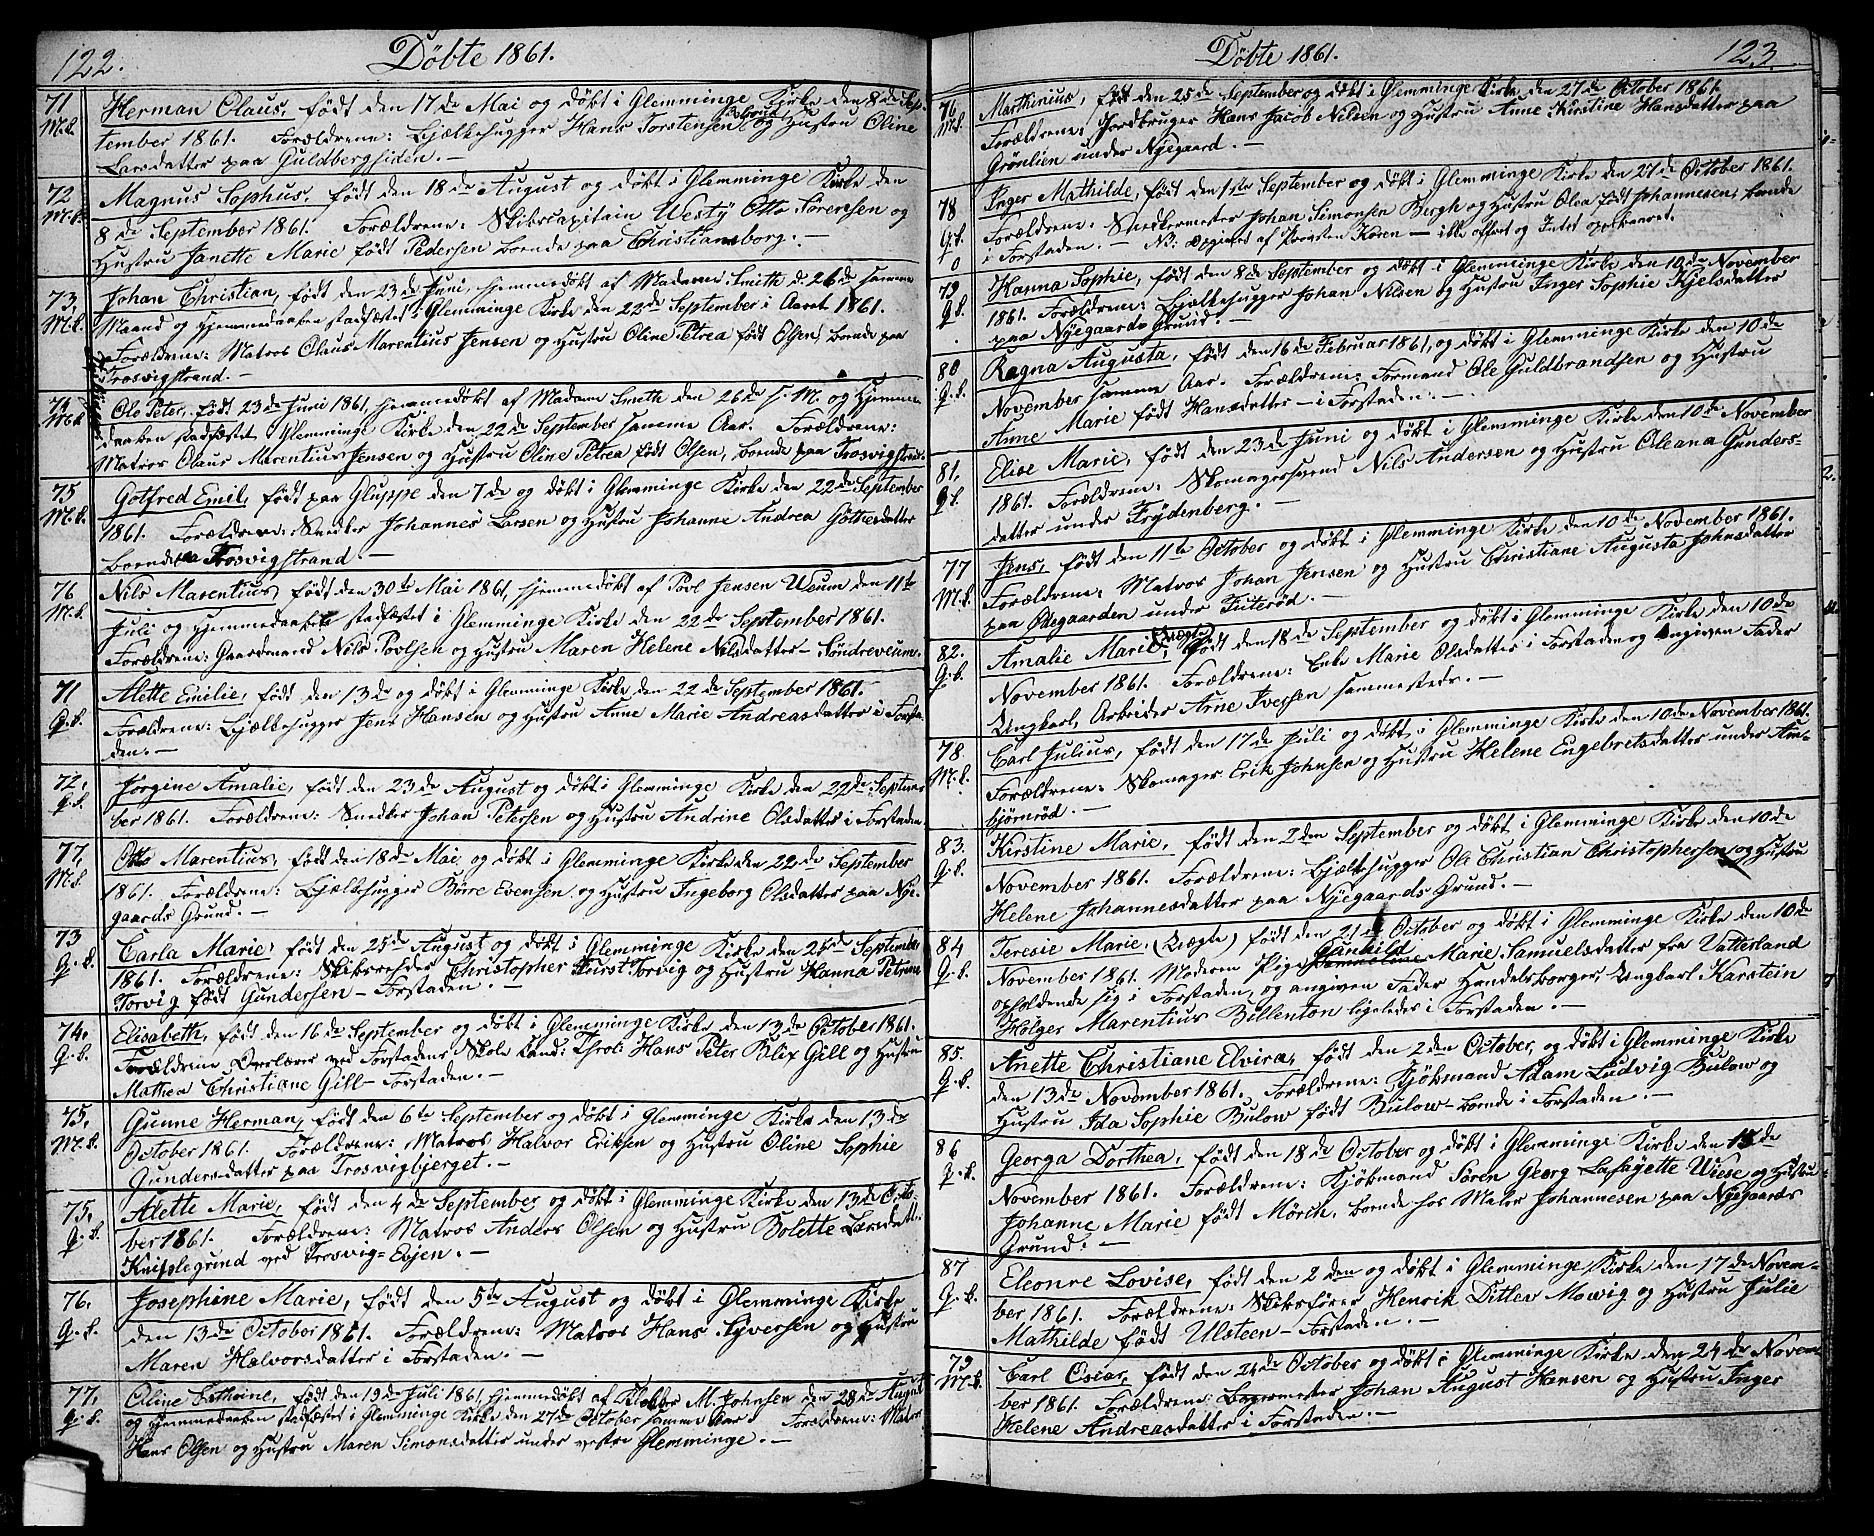 122.
Döbte 1861.
71
M.k.
Herman Olaus, født den 17de Mai og døbt i Glemminge Kirke den 8de Sep-
tember 1861. Forældrene: Bjælkehugger Hans Torstensen og Hustru Oline
Larsdatter paa Guldbergsiden.–
72
M.k.
Magnus Sophus, født den 18de August og døbt i Glemminge Kirke den
8de September 1861. Forældrene: Skibscapitain Westÿ Otto Sörensen og
Hustru Janette Marie født Pedersen boende paa Christiansborg.–
73
M.k.
Johan Christian, født den 23de Juni, hjemmedøbt af Madame Smith d. 26de samme
Maaned og Hjemmedaaben stadfæstet i Glemminge Kirke den 22de September i Aaret 1861.
Forældrene: Matros Olaus Marentius Jensen og Hustru Oline Petrea født Olsen, boende paa
Trosvigstrand.–
74
M.k.
Ole Peter, født 23de Juni 1861, hjemmedøbt af Madam Smith den 26de s. M. og Hjemme-
daaben stadfæstet i Glemminge Kirke den 22de September samme Aar. Forældrene:
Matros Olaus Marentius Jensen og Hustru Oline Petrea født Olsen, boende paa Trosvigstrand.
75
M.k.
Gotfred Emil, født paa Gluppe den 7de og døbt i Glemminge Kirke den 22de September
1861. Forældrene: Snedker Johannes Larsen og Hustru Johanne Andrea Göthesdatter
boende paa Trosvigstrand.–
76
M.k.
Nils Marentius, født den 30te Mai 1861, hjemmedøbt af Povl Jensen Ueum den 11te
Juli og Hjemmedaaben stadfæstet i Glemminge Kirke den 22de September 1861.
Forældrene: Gaardmand Nils Povlsen og Hustru Maren Helene Nilsdatter – Söndreveum.
71
Q.k.
Alette Emilie, født den 13de og døbt i Glemminge Kirke den 22de September 1861.
Forældrene: Bjælkehugger Jens Hansen og Hustru Anne Marie Andreasdatter i Forsta-
den.–
72,
Q.k.
Jörgine Amalie, født den 23de August og døbt i Glemminge Kirke den 22de Septem-
ber 1861. Forældrene: Snedker Johan Petersen og Hustru Andrine Olsdatter i Forstaden.
77,
M.k.
Otto Marentius, født den 18de Mai og døbt i Glemminge Kirke den 22de September
1861. Forældrene: Bjælkehugger Börre Evensen og Hustru Ingeborg Olsdatter paa Nye-
gaards Grund.–
73
Q.k.
Carla Marie, født den 25de August og døbt i Glemminge Kirke den 25de September
1861. Forældrene: Skibsrheder Christopher Torvig og Hustru Hanna Petrine
Torvig født Gundersen – Forstaden.–
74.
Q.k.
Elisabeth, født den 16de September og døbt i Glemminge Kirke den 13de October 1861.
Forældrene Overlærer ved Forstadens Skole Cand: Theol: Hans Peter Blix Gill og Hustru
Mathea Christiane Gill – Forstaden.–
75,
M.k.
Gunne Herman, født den 6te September og døbt i Glemminge Kirke den 13de
October 1861. Forældrene: Matros Halvor Eriksen og Hustru Oline Sophie
Gundersdatter paa Trosvigbjerget.–
75,
Q.k.
Alette Marie, født den 4de September og døbt i Glemminge Kirke den 13de Octo-
ber 1861. Forældrene: Matros Anders Olsen og Hustru Bolette Larsdatter
Kniplegrund ved Trosvig-Evjen.–
76,
Q.k.
Josephine Marie, født den 5te August og døbt i Glemminge Kirke
den 13de October 1861. Forældrene: Matros Hans Syversen og Hustru
Maren Halvorsdatter i Forstaden.–
77,
Q.k.
Oline Cathrine, født den 19de Juli 1861 hjemmedøbt af Klokker M. Johnsen den 28de August
og Hjemmedaaben stadfæstet i Glemminge Kirke den 27de October samme Aar. Forældrene: Matros
Hans Olsen og Hustru Maren Simonsdatter under vestre Glemminge.–
Döbte 1861.
123.
76
M.k.
Marthinius, født den 25de September og døbt i Glemminge Kirke den 27de October 1861
Forældrene: Jordbruger Hans Jacob Nilsen og Hustru Anne Kirstine Hansdatter paa
Grönlien under Nyegaard.–
78
Q.k.
0
Inger Mathilde, født den 1ste September og døbt i Glemminge Kirke den 27de October 1861.
Forældrene: Snedkermester Johan Simonsen Bergh og Hustru Olea født Johannesen, boende
i Forstaden.– NB: opgivet af Præsten Koren – ikke offret og Intet opskrevet.
79
Q.k.
Hanna Sophie, født den 8de September og døbt i Glemminge Kirke den 10de November
1861. Forældrene: Bjælkehugger Johan Nilsen og Hustru Inger Sophie Kjelsdatter
paa Nyegaards Grund.–
80
Q.k.
Ragna Augusta, født den 16de Februar 1861, og døbt i Glemminge Kirke den 10de
November samme Aar. Forældrene: Formand Ole Guldbrandsen og Hustru
Anne Marie født Hansdatter – i Forstaden.–
81,
Q.k.
Elise Marie, født den 23de Juni og døbt i Glemminge Kirke den 10de November
1861. Forældrene: Skomagersvend Nils Andersen og Hustru Oleana Gunders-
datter under Frydenberg.–
77
M.k.
Jens, født den 11te October og døbt i Glemminge Kirke den 10de November 1861.
Forældrene: Matros Johan Jensen og Hustru Christiane Augusta Johnsdatter
paa Ødegaarden under Futeröd.–
82.
Q.k.
Amalie Marie, (Uægte) født den 18de September og døbt i Glemminge Kirke den 10de
November 1861. Forældrene: Enke Marie Olsdatter i Forstaden og angiven Fader
Ungkarl, Arbeider Arne Ivessen sammesteds.–
78
M.k.
Carl Julius, født den 17de Juli og døbt i Glemminge Kirke den 10de November 1861.
Forældrene: Skomager Erik Johnsen og Hustru Helene Engebretsdatter under Am-
björnröd.–
83.
Q.k.
Kirstine Marie, født den 2den September og døbt i Glemminge Kirke den 10de
November 1861. Forældrene: Bjælkehugger Ole Christian Christophersen og Hustru
Helene Johannesdatter paa Nyegaards Grund.–
84
Q.k.
Teresie Marie, (Uægte) født den 21de October og døbt i Glemminge Kirke den 10de
November 1861. Moderen Pige Gunhild Marie Samuelsdatter fra Vatterland
opholdende sig i Forstaden, og angiven Fader Handelsborger, Ungkarl Karstein
Holger Marentius Billenton ligeledes i Forstaden.–
85.
Q.k.
Anette Christiane Elvira, født den 2den October, og døbt i Glemminge Kirke
den 13de November 1861. Forældrene: Kjøbmand Adam Ludvig Bulow og
Hustru Ida Sophie Bulow født Bulow – boende i Forstaden.–
86
Q.k.
Georga Dorthea, født den 18de October og døbt i Glemminge Kirke den 15de
November 1861. Forældrene: Kjøbmand Sören Georg Lafayette Wiese og Hustru
Johanne Marie født Mörch, boende hos Maler Johannesen paa Nyegaards
Grund.–
87
Q.k.
Eleonre Lovise, født den 2den og døbt i Glemminge Kirke den 17de Novem-
ber 1861. Forældrene: Skibsfører Henrik Ditlev Mowig og Hustru Julie
Mathilde født Ulsteen – Forstaden.–
79
M.k.
Carl Oscar, født den 24de October og døbt i Glemminge Kirke den 24de Novem-
ber 1861. Forældrene: Bagermester Johan August Hansen og Hustru Inger
Helene Andreasdatter i Forstaden.–